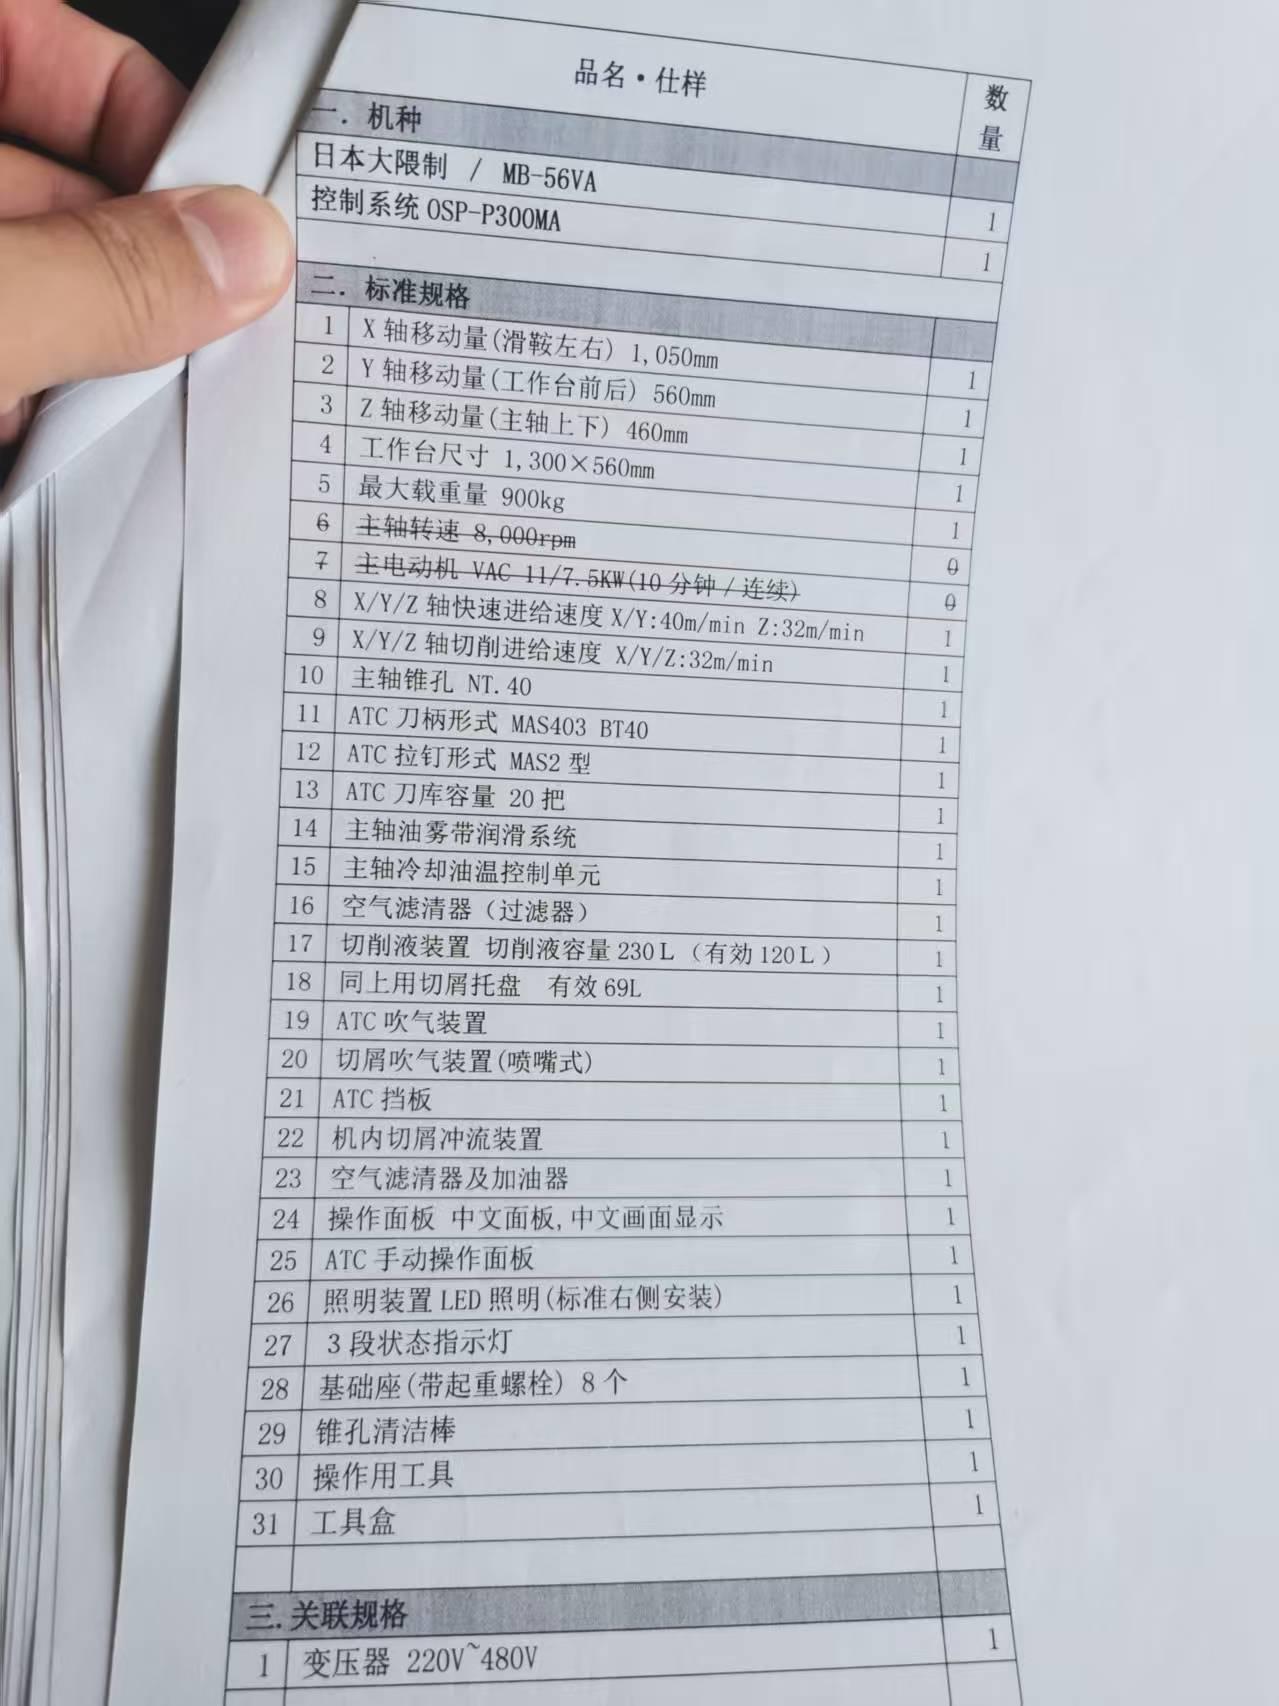 品名·仕样 数量
一. 机种
日本大隈制 / MB-56VA 1
控制系统 OSP-P300MA 1
二. 标准规格
1 X 轴移动量(滑鞍左右) 1,050mm 1
2 Y 轴移动量(工作台前后) 560mm 1
3 Z 轴移动量(主轴上下) 460mm 1
4 工作台尺寸 1,300×560mm 1
5 最大载重量 900kg 1
6 主轴转速 8,000rpm 0
7 主电动机 VAC 11/7.5KW(10 分钟/连续) 0
8 X/Y/Z 轴快速进给速度 X/Y:40m/min Z:32m/min 1
9 X/Y/Z 轴切削进给速度 X/Y/Z:32m/min 1
10 主轴锥孔 NT.40 1
11 ATC 刀柄形式 MAS403 BT40 1
12 ATC 拉钉形式 MAS2 型 1
13 ATC 刀库容量 20 把 1
14 主轴油雾带润滑系统 1
15 主轴冷却油温控制单元 1
16 空气滤清器（过滤器） 1
17 切削液装置 切削液容量 230L（有効 120L） 1
18 同上用切屑托盘 有效 69L 1
19 ATC 吹气装置 1
20 切屑吹气装置(喷嘴式) 1
21 ATC 挡板 1
22 机内切屑冲流装置 1
23 空气滤清器及加油器 1
24 操作面板 中文面板,中文画面显示 1
25 ATC 手动操作面板 1
26 照明装置 LED 照明(标准右侧安装) 1
27 3 段状态指示灯 1
28 基础座(带起重螺栓) 8 个 1
29 锥孔清洁棒 1
30 操作用工具 1
31 工具盒 1
三. 关联规格
1 变压器 220V~480V 1